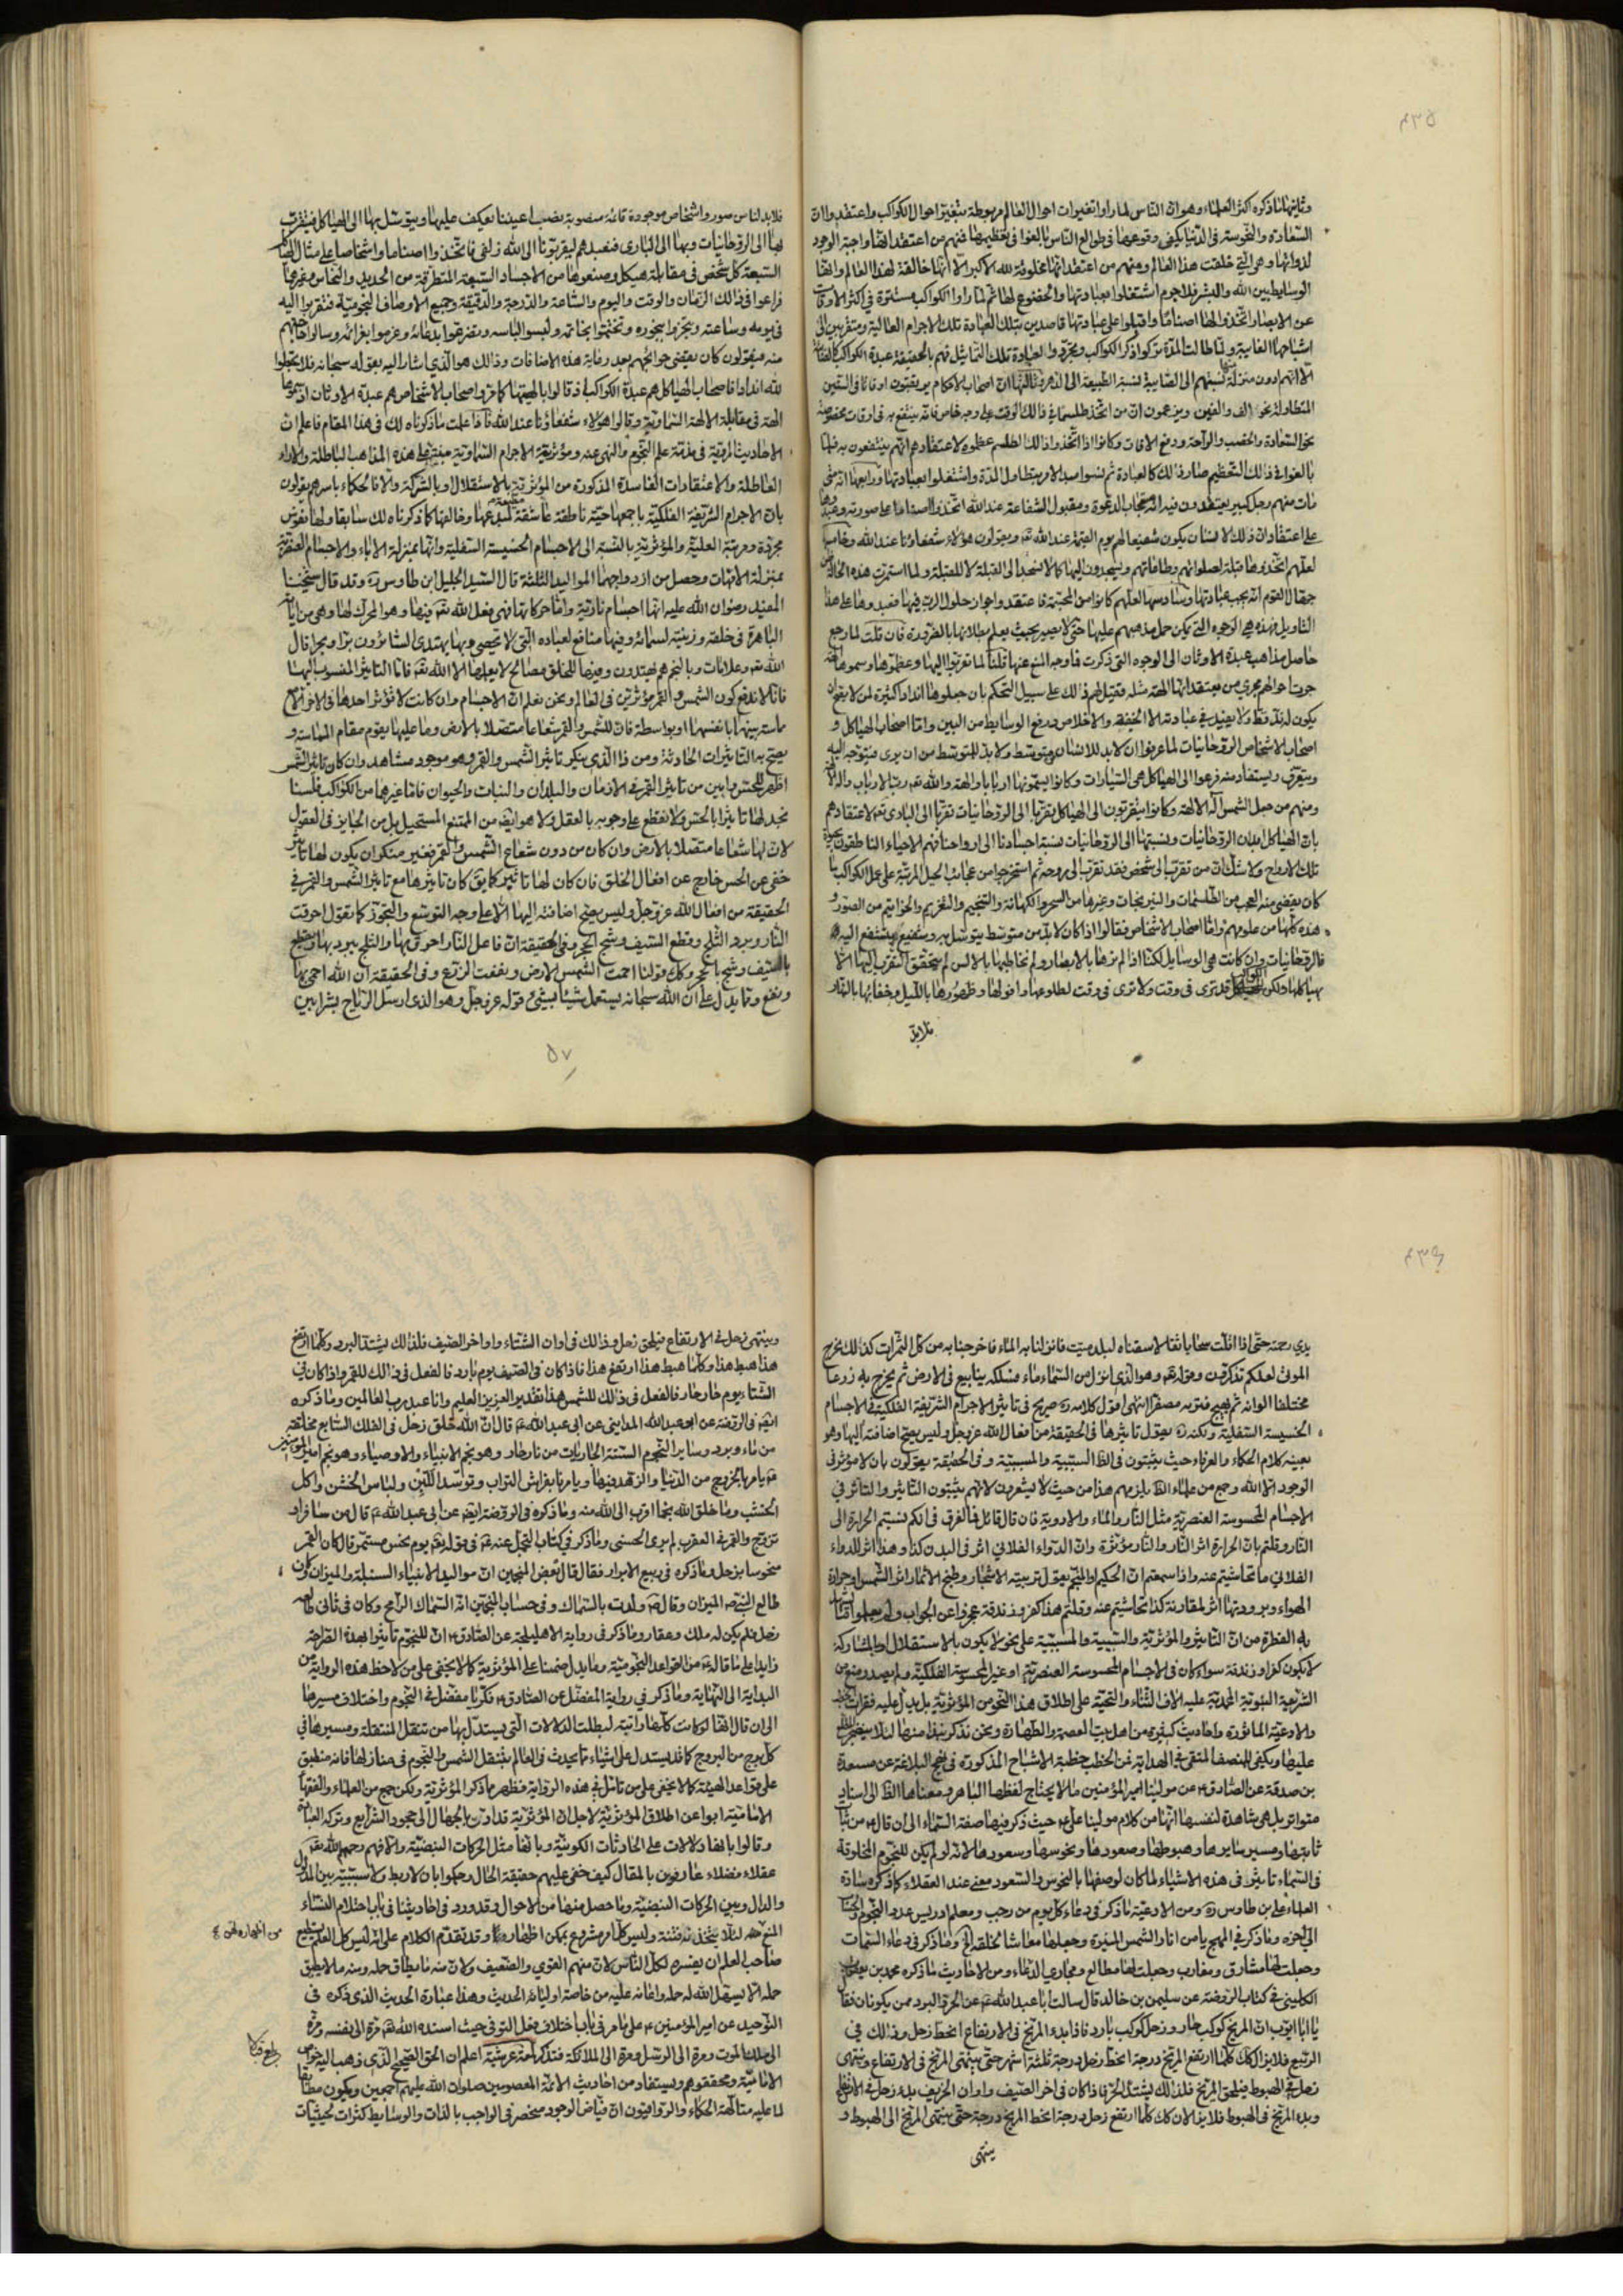 ٤٣٥
وثانيها ما ذكره اكثر العلماء وهو ان الناس لما راوا تغيرات احوال العالم مربوطة بتغير احوال الكواكب واعتقدوا ان
السعادة والنحوسة في الدنيا بكيفية وقوعها في طوالع الناس بالغوا في تعظيمها فمنهم من اعتقد انها واجبة الوجود
لذواتها وهي التي خلقت هذا العالم ومنهم من اعتقد انها مخلوقة لله الاكبر الا انها خالقة لهذا العالم وانها
الوسايط بين الله والبشر فلاجرم اشتغلوا بعبادتها والخضوع لها ثم لما راوا الكواكب مستترة في اكثر الاوقات
عن الابصار اتخذوا لها اصناما واقبلوا على عبادتها قاصدين بتلك العبادة تلك الاجرام العالية ومتقربين الى
اشباحها الغايبة ولما طالت المدة تركوا ذكر الكواكب وتجردوا لعبادة تلك التماثيل فهم بالحقيقة عبدة الكواكب
الا انهم ادون منزلة نسبتهم الى الصابية نسبة الطبيعة الى الدهرية وثالثها ان اصحاب الاحكام يرتقبون اوقاتا في السنين
المتطاولة نحو الالف والفين ويزعمون ان من اتخذ طلسما في ذلك الوقت على وجه خاص فانه ينتفع به في اوقات مخصوصة
نحو السعادة والخصب والراحة ودفع الافات وكانوا اذا اتخذوا ذلك الطلسم عظموه لاعتقادهم انهم ينتفعون به فلما
بالغوا في ذلك التعظيم صار ذلك كالعبادة ثم نسوا مبدا الامر بتطاول المدة واشتغلوا بعبادتها ورابعها انه متى
مات منهم رجل كبير يعتقدون فيه انه مجاب الدعوة ومقبول الشفاعة عند الله اتخذوا صنما على صورته وعبدوها
على اعتقاد ان ذلك الانسان يكون شفيعا لهم يوم القيمة عند الله تعه ويقولون هؤلاء شفعاؤنا عند الله وخامسها
لعلهم اتخذوها قبلة لصلواتهم وطاعاتهم ويسجدون اليها كما انا نسجد الى القبلة لا للقبلة ولما استمرت هذه الحالة ظن
جهال القوم انه يجب عبادتها وسادسها لعلهم كانوا من المجسمة فاعتقدوا جواز حلول الرب فيها فعبدوها على هذا
التاويل فهذه هي الوجوه التي يمكن حمل مذهبهم عليها حتى لا يصير بحيث يعلم بطلانها بالضرورة فان قلت لما رجع
حاصل مذاهب عبدة الاوثان الى الوجوه التي ذكرت فما وجه المنع عنها قلنا لما تقربوا اليها وعظموها وسموها الهة
جرت احوالهم مجرى من يعتقد انها الهة مثله فقيل لهم ذلك على سبيل التهكم بان جعلوها اندادا كثيرة لمن لا يجوز ان
يكون له ند قط
اصحاب الاشخاص الروحانيات لما عرفوا ان لابد للانسان من متوسط ولابد للمتوسط من ان يرى فيتوجه اليه
ويتقرب ويستفاد منه فزعوا الى الهياكل هي السيارات وكانوا يسمونها اربابا والهة والله تعه رب الارباب واله الالهة
ومنهم من جعل الشمس اله الالهة وكانوا يتقربون الى الهياكل تقربا الى الروحانيات تقربا الى الباري تعه لاعتقادهم
بان الهياكل ابدان الروحانيات ونسبتها الى الروحانيات نسبة اجسادنا الى ارواحنا فهم الاحياء الناطقون بحيوة
تلك الارواح ولا شك ان من تقرب الى شخص فقد تقرب الى روحه ثم استخرجوا من عجائب الحيل المرتبة على عمل الكواكب ما
كان يقضي منه العجب من الطلسمات والنيرنجات وغيرها من السحر والكهانة والتنجيم والتعزيم والخواتيم من الصور و
هذه كلها من علومهم واما اصحاب الاشخاص فقالوا اذا كان لابد من متوسط يتوسل به وشفيع يتشفع اليه و
فالروحانيات وان كانت هي الوسايل لكنا اذا لم نرها بالابصار ولم نخاطبها بالالسن لم يتحقق التقرب اليها الا
بهياكلها ولكن الهياكل قد ترى في وقت ولا ترى في وقت لطلوعها وافولها وظهورها بالليل وخفائها بالنهار
فلابد
فلابد لناس صور واشخاص موجودة قائمة منصوبة نصب اعيننا نعكف عليها ونتوسل بها الى الهياكل فنتقرب
بها الى الروحانيات وبها الى الباري فنعبدهم ليقربونا الى الله زلفى فاتخذوا اصناما واشخاصا على مثال
السبعة كل شخص في مقابلة هيكل وصنعوها من الاجساد السبعة المتطرقة من الحديد والنحاس وغيرهما
فراعوا في ذلك الزمان والوقت واليوم والساعة والدرجة والدقيقة وجميع الاوصاف النجومية فتقربوا اليه
في يومه وساعته وتبخروا ببخوره وتختموا بخاتمه ولبسوا لباسه وتضرعوا بدعائه وعزموا بعزائمه وسالوا حاجتهم
منه فيقولون كان يقضي حوائجهم بعد رعاية هذه الاضافات وذلك هو الذي اشار اليه بقوله سبحانه فلا تجعلوا
لله اندادا فاصحاب الهياكل هم عبدة الكواكب اذ قالوا بالهيتها كما مر واصحاب الاشخاص هم عبدة الاوثان اذ سموها
الهة في مقابلة الالهة السماوية وقالوا هؤلاء شفعاؤنا عند الله فاذا علمت ما ذكرناه لك في هذا المقام فاعلم ان
الاحاديث المروية في مذمة علم النجوم والنهي عنه ومؤثرية الاجرام السماوية هذه المذاهب الباطلة والاراء
العاطلة والاعتقادات الفاسدة المذكورة من المؤثرية بالاستقلال او بالشركة والا فالحكماء باسرهم يقولون
بان الاجرام الشريفة الفلكية باجمعها حية ناطقة عاشقة لمبدعها وخالقها كما ذكرناه لك سابقا ولها نفوس
مجردة ومرتبة العلية والمؤثرية بالنسبة الى الاجسام الخسيسة السفلية وانها بمنزلة الاباء والاجسام العنصرية
بمنزلة الامهات وحصل من ازدواجهما المواليد الثلثة قال السيد الجليل ابن طاوس ره وقد قال شيخنا
المفيد رضوان الله عليه انها اجسام نارية واما حركاتها فهي فعل الله تعه فيها وهو المحرك لها وهي من ايات
الباهرة في خلقه وزينة لسمائه وفيها منافع لعباده التي لا تحصى وبها يهتدى السائرون برا وبحرا قال
الله تعه وعلامات وبالنجم هم يهتدون وفيها للخلق مصالح لا يعلمها الا الله تعه فاما التاثير المنسوب اليها
فانا لا ندفع كون الشمس والقمر مؤثرين في العالم ونحن نعلم ان الاجسام وان كانت لا تؤثر احدها في الاخر الا مع
مماسة بينهما بانفسهما او بواسطة فان للشمس والقمر شعاعا متصلا بالارض وما عليها يقوم مقام المماسة و
يصح به التاثيرات الحادثة ومن ذا الذي ينكر تاثير الشمس والقمر وهو موجود مشاهد وان كان تاثير الشمس
اظهر للحس وابين من تاثير القمر في الازمان والبلدان والنبات والحيوان فاما غيرهما من الكواكب فلسنا
نجد لها تاثيرا بالحس ولا نقطع على وجوبه بالعقل ولا هو ايضا من الممتنع المستحيل بل من الجايز في العقول
لان لها شعاعا متصلا بالارض وان كان من دون شعاع الشمس والقمر فغير منكر ان يكون لها تاثير
خفي عن الحس خارج عن افعال الخلق فان كان لها تاثير كما يق كان تاثيرها مع تاثير الشمس والقمر في
الحقيقة من افعال الله عز وجل وليس يصح اضافته اليها الا على وجه التوسع والتجوز كما نقول احرقت
النار وبرد الثلج وقطع السيف وشج الحجر وفي الحقيقة ان فاعل النار احرق بها والثلج برد بها وقطع
بالسيف وشج بالحجر وكك قولنا احمت الشمس الارض ونفعت الزرع وفي الحقيقة ان الله احمى بها
ونفع ومما يدل على ان الله سبحانه يستعمل شيئا بشيئ قوله عز وجل وهو الذي ارسل الرياح بشرا بين
٥٧
٤٣٦
يدي رحمته حتى اذا اقلت سحابا ثقالا سقناه لبلد ميت فانزلنا به الماء فاخرجنا به من كل الثمرات كذلك نخرج
الموتى لعلكم تذكرون وقوله تعه وهو الذي انزل من السماء ماء فسلكه ينابيع في الارض ثم يخرج به زرعا
مختلفا الوانه ثم يهيج فتريه مصفرا انتهى اقول كلامه ره صريح في تاثير الاجرام الشريفة الفلكية في الاجسام
الخسيسة السفلية ولكنه ره يقول تاثيرها في الحقيقة من افعال الله عز وجل وليس يصح اضافته اليها وهو
بعينه كلام الحكماء والعرفاء حيث يثبتون في الظا السببية والمسببية وفي الحقيقة يقولون بان لا مؤثر في
الوجود الا الله وجمع من علماء الظا يلزمهم هذا من حيث لا يشعرون لانهم يثبتون التاثير والتاثر في
الاجسام المحسوسة العنصرية مثل النار والماء والادوية فان قال قائل فما الفرق في انكم نسبتم الحرارة الى
النار وقلتم بان الحرارة اثر النار والنار مؤثرة وان الدواء الفلاني اثر في البدن كذا وهذا اثر الدواء
الفلاني ما تحاشيتم عنه واذا سمعتم ان الحكيم او المنجم يقول تربية الاشجار وطبخ الاثمار اثر الشمس وحرارة
الهواء وبرودتها اثر لمقارنة كذا تحاشيتم عنه وقلتم هذا كفر وزندقة عجزوا عن الجواب
بله الفطرة من ان التاثير والمؤثرية والسببية والمسببية على نحو لا يكون بالاستقلال او المشاركة
لا يكون كفرا وزندقة سواء كان في الاجسام المحسوسة العنصرية او غير المحسوسة الفلكية ولم يصدر منع من
الشريعة النبوية المحمدية عليه الاف الثناء والتحية على اطلاق هذا النحو من المؤثرية بل يدل عليه فقرات الخطب
والادعية الماثورة واحاديث كثيرة من اهل بيت العصمة والطهارة ونحن نذكر نبذا منها
عليها ويكفي للمنصف المتقي في الهداية فمن الخطب خطبة الاشباح المذكورة في نهج البلاغة عن مسعدة
بن صدقة عن الصادق ع عن مولينا امير المؤمنين ما لا يحتاج لفظها الباهر ومعناها الظا الى اسناد
متواتر بل هي شاهدة لنفسها انها من كلام مولينا علي ع حيث ذكر فيها صفة السماء الى ان قال ع من ثبات
ثابتها ومسير سايرها وهبوطها وصعودها ونحوسها وسعودها لانه لو لم يكن للنجوم المخلوقة
في السماء تاثير في هذه الاشياء لما كان لوصفها بالنحوس والسعود معنى عند العقلاء كما ذكره سادة
العلماء علي بن طاوس ره ومن الادعية ما ذكر في دعاء كل يوم من رجب ومعلم ادريس عدد النجوم والحساب
الى اخره وما ذكر في المهج يا من انار الشمس المنيرة وجعلها معاشا لخلقه الخ وما ذكر في دعاء السمات
وجعلت لها مشارق ومغارب وجعلت لها مطالع ومجاري الدعاء ومن الاحاديث ما ذكره محمد بن يعقوب
الكليني في كتاب الروضة عن سليمن بن خالد قال سالت ابا عبد الله ع عن الحر والبرد ممن يكونان فقال
يا ابا ايوب ان المريخ كوكب حار وزحل كوكب بارد فاذا بدء المريخ في الارتفاع انحط زحل وذلك في
الربيع فلا يزالان كك كلما ارتفع المريخ درجة انحط زحل درجة ثلثة اشهر حتى ينتهي المريخ في الارتفاع وينتهي
زحل في الهبوط فيلحق المريخ فلذلك يشتد الحر فاذا كان في اخر الصيف واوان الخريف بدء زحل في الارتفاع
وبدء المريخ في الهبوط فلا يزالان كك كلما ارتفع زحل درجة انحط المريخ درجة حتى ينتهي المريخ الى الهبوط و
ينتهي
وينتهي زحل في الارتفاع فيلحق زحل وذلك في اوان الشتاء واواخر الصيف فلذلك يشتد البرد وكلما ارتفع
هذا هبط هذا وكلما هبط هذا ارتفع هذا فاذا كان في الصيف يوم بارد فالفعل في ذلك للقمر واذا كان في
الشتاء يوم حار حار فالفعل في ذلك للشمس هذا تقدير العزيز العليم وانا عبد رب العالمين وما ذكره
ايضا في الروضة عن ابو عبد الله المدايني عن ابي عبد الله ع قال ان الله خلق زحل في الفلك السابع فخلقه
من ماء وبرد وساير النجوم الستة الجاريات من نار حار وهو نجم الانبياء والاوصياء وهو نجم امير المؤمنين
ع يامر بالخروج من الدنيا والزهد فيها ويامر بافتراش التراب وتوسد اللبن ولباس الخشن واكل
الجشب وما خلق الله نجما اقرب الى الله منه وما ذكره في الروضة ايضا عن ابي عبد الله ع قال من سافر او
تزوج والقمر في العقرب لم يرى الحسنى وما ذكر في كتاب التجمل عنه ع في قوله تعه يوم نحس مستمر قال كان القمر
منحوسا بزحل وما ذكره في ربيع الابرار فقال قال بعض المنجمين ان مواليد الانبياء السنبلة والميزان وكان
طالع النبي ص الميزان وقال ص ولدت بالسماك وفي حساب المنجمين انه السماك الرامح وكان في ثاني طالعه
زحل فلم يكن له ملك وعقار وما ذكر في رواية الاهليلجة عن الصادق ع ان للنجوم تاثيرا بهذه الصراحة
زايدا على ما قاله ع من القواعد النجومية وما يدل ضمنا على المؤثرية كما لا يخفى على من لاحظ هذه الرواية من
البداية الى النهاية وما ذكر في رواية المفضل عن الصادق ع فكر يا مفضل في النجوم واختلاف مسيرها
الى ان قال انها لو كانت كلها راتبة لبطلت الدلالات التي يستدل بها من تنقل المنتقلة ومسيرها في
كل برج من البروج كما قد يستدل على اشياء مما يحدث في العالم بتنقل الشمس والنجوم في منازلها فانه منطبق
على قواعد الهيئة كما لا يخفى على من تامل في هذه الرواية فظهر مما ذكر المؤثرية ولكن جمع من العلماء والفقهاء
الامامية ابوا عن اطلاق المؤثرية لاجل ان المؤثرية قد اورث الجهال الى جحود الشرايع وترك العبادة
وقالوا بانها دلالات على الحادثات الكونية وبانها مثل الحركات النبضية والا فهم رحمهم الله تعه
عقلاء فضلاء عارفون بالمقال كيف خفى عليهم حقيقة الحال وحكموا بان لا ربط ولا سببية بين المدلول
والدال وبين الحركات النبضية وما حصل منها من الاحوال وقد ورد في احاديثنا في باب احتلام النساء
المنع منه لئلا يتخذنه فتنة وليس كل امر مشروع يمكن اظهاره وقد تقدم الكلام على انه ليس كل العلم يستطيع
صاحب العلم ان يفسره لكل الناس لان منهم القوي والضعيف ولان منه ما يطاق حمله ومنه ما لا يطيق
حمله الا لمن يسهل الله له حمله واعانه عليه من خاصة اوليائه الحديث وهذا عبارة الحديث الذي ذكره في
التوحيد عن امير المؤمنين ع على ما مر في باب اختلاف فعل التوفي حيث اسنده الله تعه مرة الى نفسه ومرة
الى ملك الموت ومرة الى الرسل ومرة الى الملائكة فتذكر لمعة عرشية اعلم ان الحق الصحيح الذي ذهب اليه خواص
الامامية ومحققوهم ويستفاد من احاديث الائمة المعصومين صلوات الله عليهم اجمعين ويكون مطابقا
لما عليه متالهة الحكماء والرواقيون ان فياض الوجود منحصر في الواجب بالذات والوسايط كثرات لحيثيات